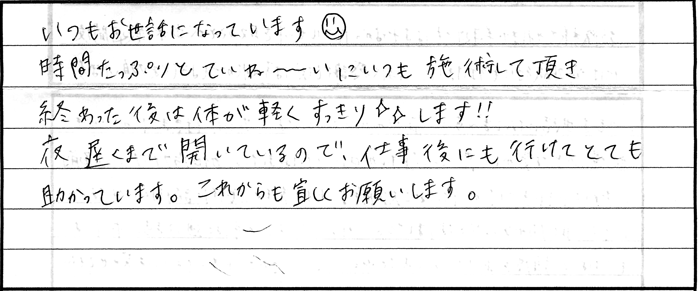 いつもお世話になっています☺
時間たっぷりとていね〜いにいつも施術して頂き
終わった後は体が軽くすっきり☆☆します!!
夜遅くまで開いているので、仕事後にも行けてとても
助かっています。これからも宜しくお願いします。